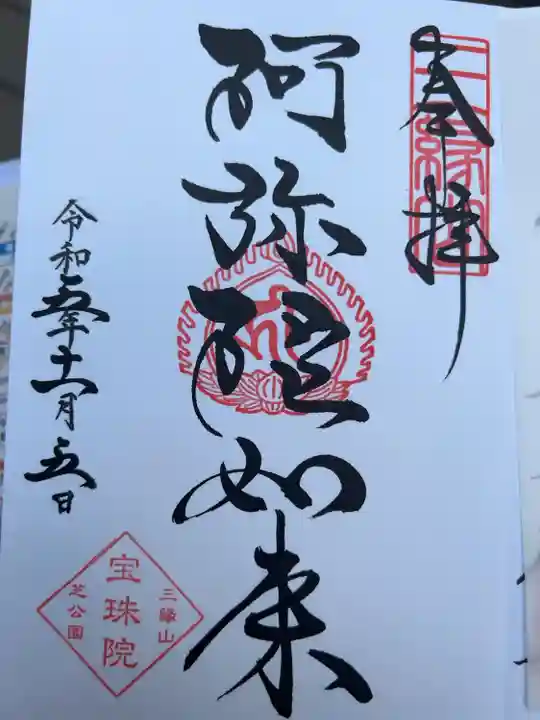 奉拝
三縁山
阿弥陀如来
令和五年十一月五日
三縁山
宝珠院
芝公園